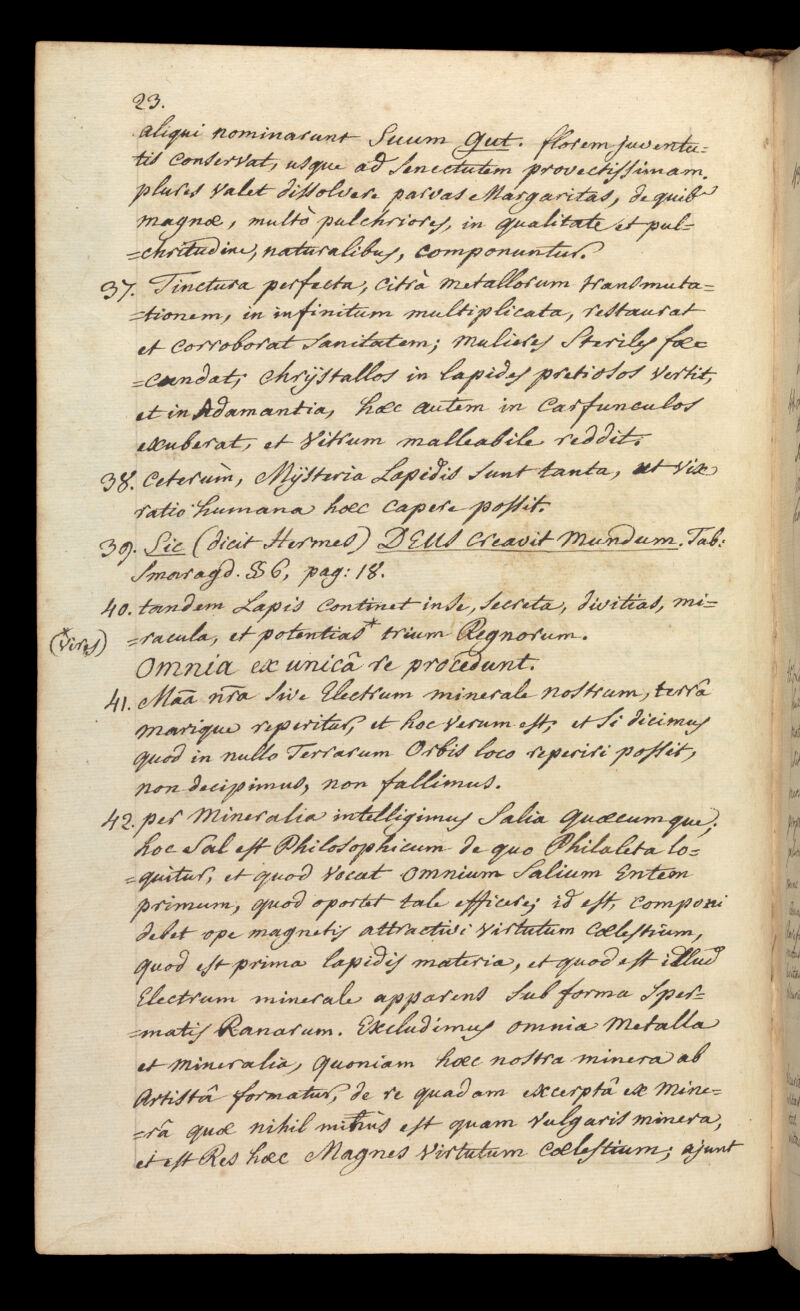 23.
aliqui nominarunt Suum Gut. florem juventu=
tis conservat, usque ad Senectutem provectissimam.
plures valet dissolvere parvas Margaritas, de quib9
magnæ, multò pulchriores, in qualitate et pul=
=chritudine, naturalibus, componuntur.
37. Tinctura perfecta, citrà metallorum transmuta=
=tionem, in infinitum multiplicata, restaurat
et corroborat Sanitatem; mulieres Steriles fœ=
=cundat; Chrÿstallos in lapides pretiosos vertit,
et in Adamantia, hæc autem in Carfunculos
exuberat, et Vitrum malleabile reddit.
38. Ceterùm, Mÿsteria Lapidis Sunt tanta, ut vix
ratio humana hæc capere possit.
39. Sic (dicit Hermes) DEUS creavit Mundum. Tab:
Smaragd. §§ 6, pag: 18.
40. tandem Lapis continet in Se, Secreta, divitias, mi=
(*vires) =racula, et potentias* trium Regnorum.
Omnia ex unicâ re procedunt.
41. Maã nr̃a Sive Electrum minerale nostrum, terrâ
marique reperitur, et hoc verum est; et Si dicimus
quod in nullo Terrarum Orbis loco reperiri possit,
non decipimus, non fallimus.
42. per Mineralia intelligimus Salia quæcumque;
hoc Sal est Philosophicum de quo Philaleta lo=
=quitur, et quod vocat Omnium Salium Entem
primum, quod oportet tale efficere; id est, componi
debet ope magnetis attractivi virtutum cœlestium,
quod est prima lapidis materia, et quod est illud
Electrum minerale apparens Sub forma Sper=
=matis Ranarum. Excludimus omnia Metalla
et Mineralia, quoniam hæc nostra minera ab
Artistâ formatur, de re quadam excerptâ ex mine=
=râ quæ nihil minus est quam vulgaris minera,
et est Res hæc Magnes Virtutum Cœlestium; ajunt